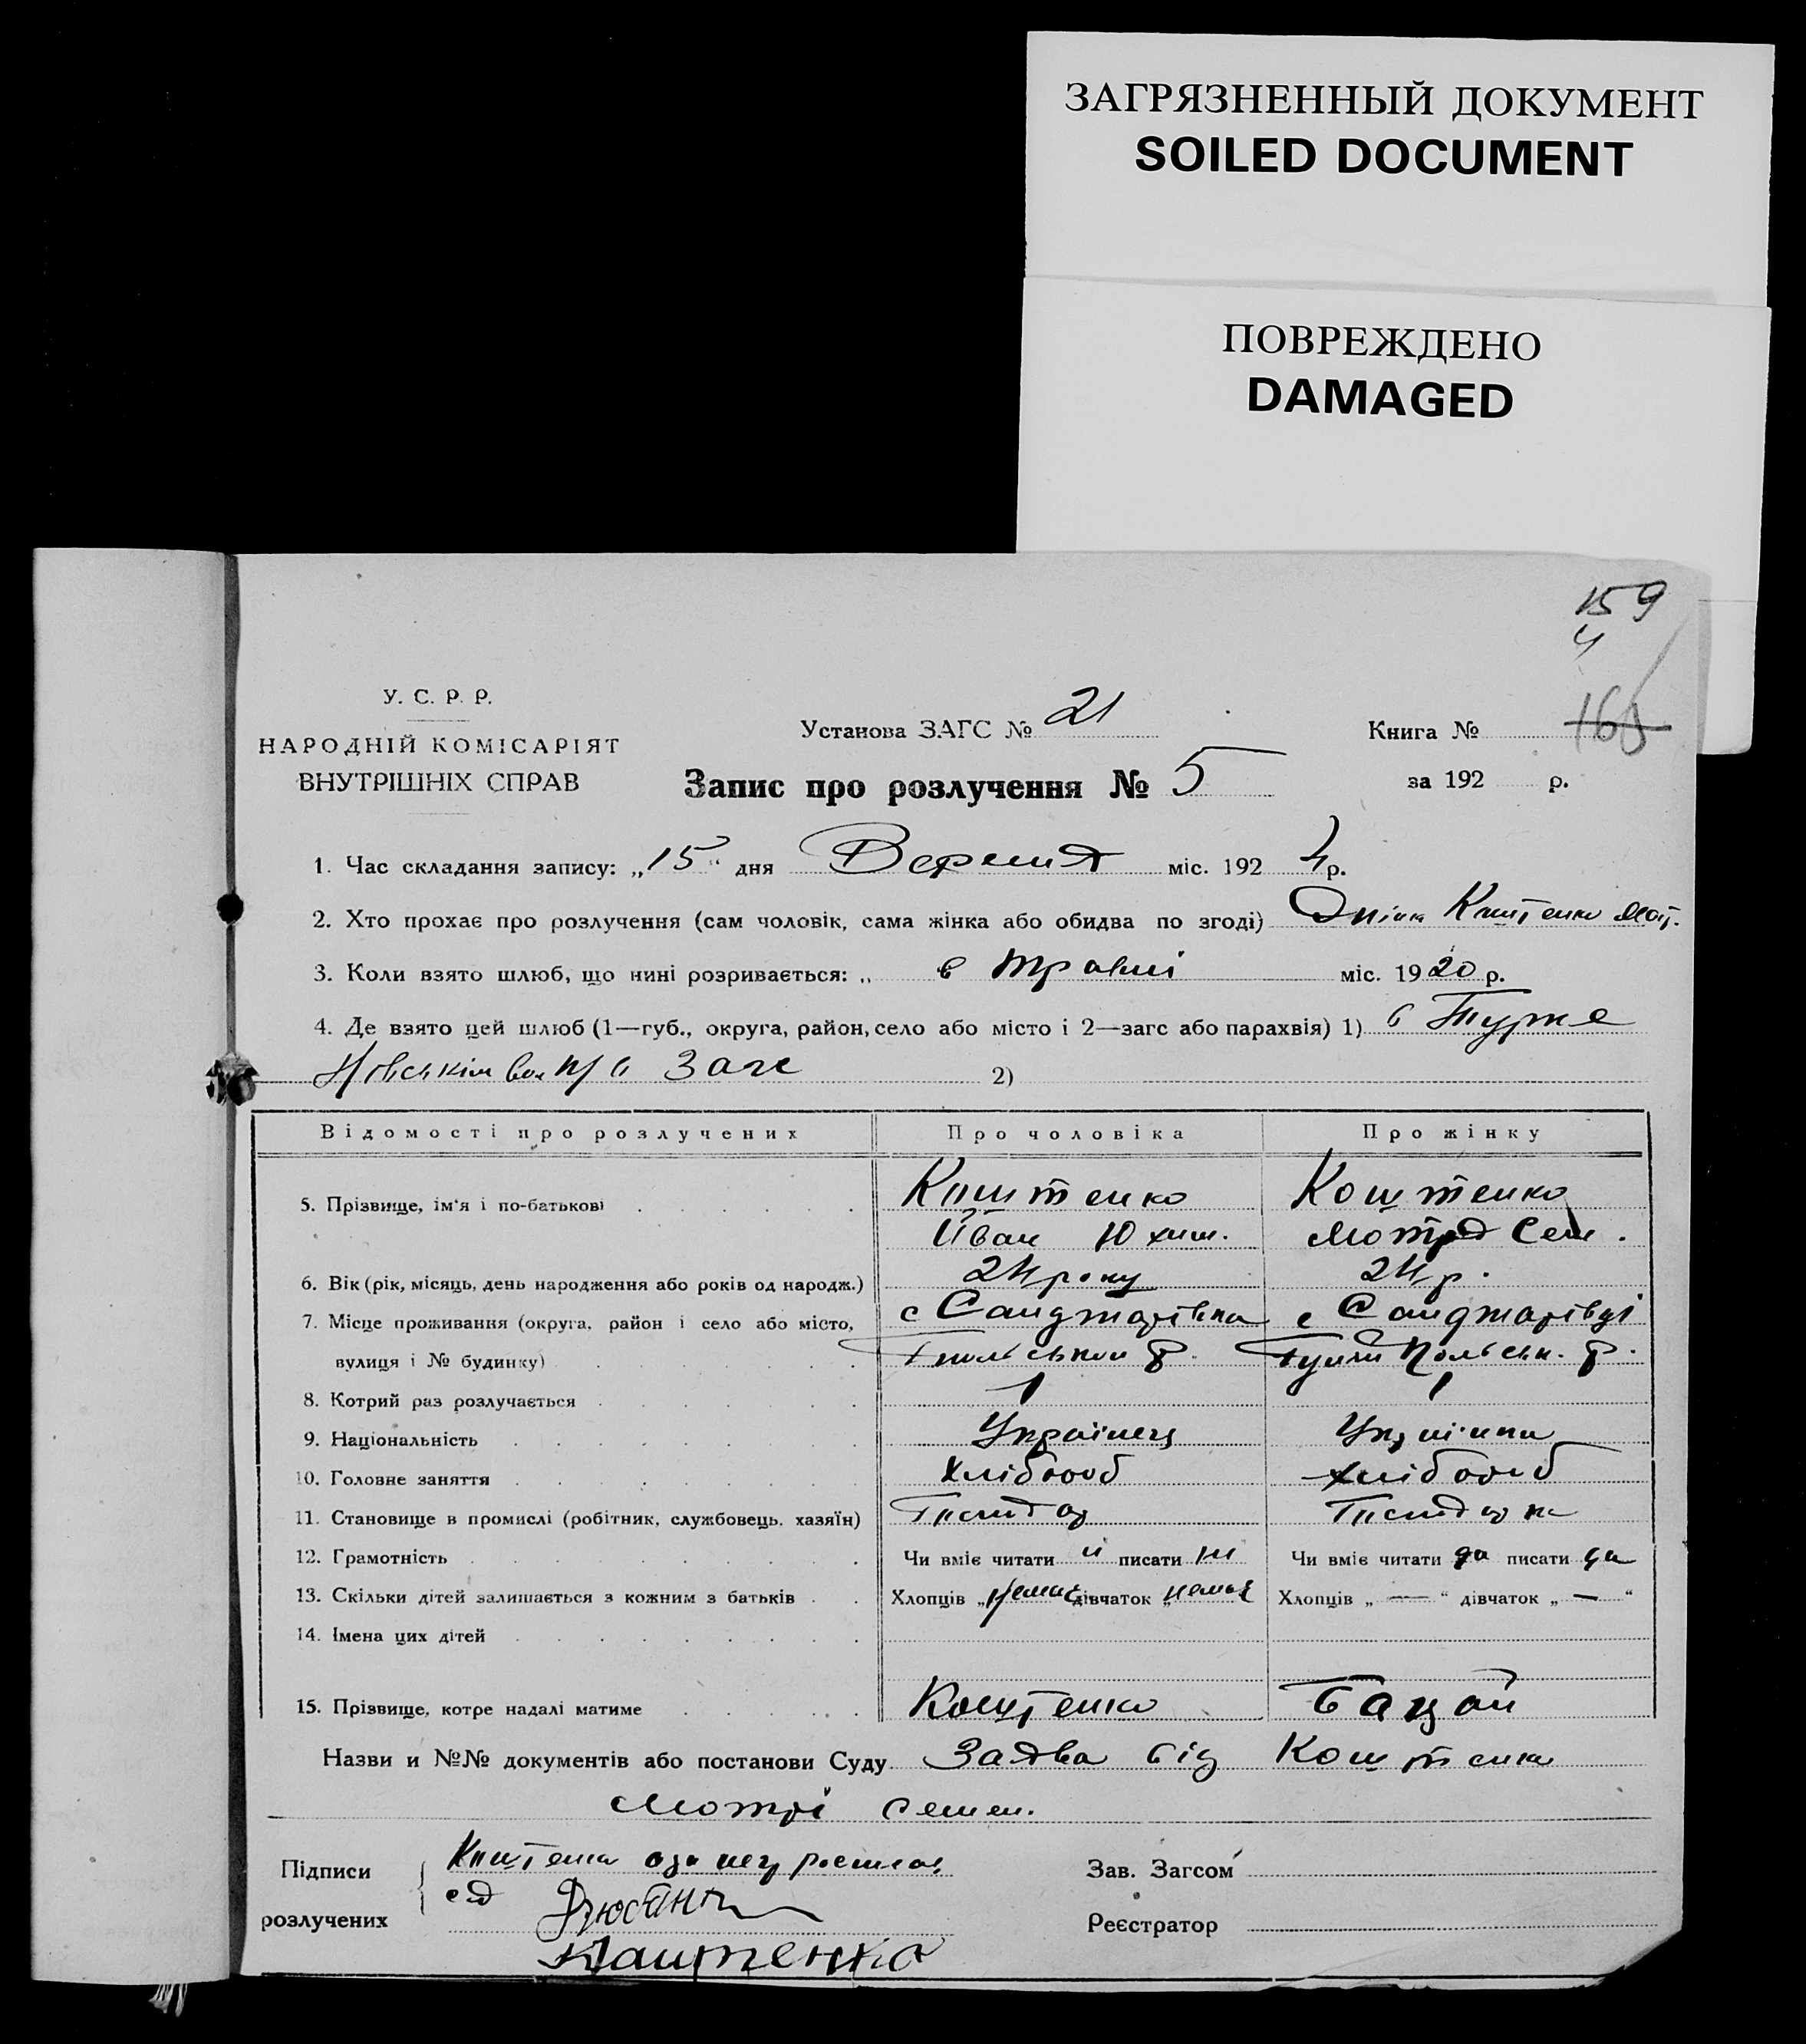 ЗАГРЯЗНЕННЫЙ ДОКУМЕНТ
SOILED DOCUMENT
ПОВРЕЖДЕНО
DAMAGED
159
4
У. С. Р. Р.
НАРОДНІЙ КОМІСАРІЯТ
ВНУТРІШНІХ СПРАВ
Установа ЗАГС № 21
Книга №
Запис про розлучення № 5
за 192 р.
1. Час складання запису: „15“ дня Вересня міс. 192 4 р.
2. Хто прохає про розлучення (сам чоловік, сама жінка або обидва по згоді) Коштенко Мот.
3. Коли взято шлюб, що нині розривається: „ в травні міс. 1920 р.
4. Де взято цей шлюб (1—губ., округа, район, село або місто і 2—загс або парахвія) 1) в
Загс 2)
Відомості про розлучених Про чоловіка Про жінку
5. Прізвище, ім'я і по-батькові Коштенко Коштенко
Иван Юхим. Мотря Сем.
6. Вік (рік, місяць, день народження або років од народж.) 24 року 24 р.
7. Місце проживання (округа, район і село або місто, с Санджарівка с Санджарівці
вулиця і № будинку) р. р.
8. Котрий раз розлучається 1 1
9. Національність Українец Українка
10. Головне заняття Хлібороб хлібороб
11. Становище в промислі (робітник, службовець, хазяїн)
12. Грамотність Чи вміє читати ні писати ні Чи вміє читати да писати да
13. Скільки дітей залишається з кожним з батьків Хлопців „немає дівчаток „немає Хлопців „ — “ дівчаток „ — “
14. Імена цих дітей
15. Прізвище, котре надалі матиме Коштенко Бацай
Назви и №№ документів або постанови Суду Заява від Коштенко
Мотрі Семен.
Підписи Коштенко
розлучених
Зав. Загсом
Реєстратор
Каштенко